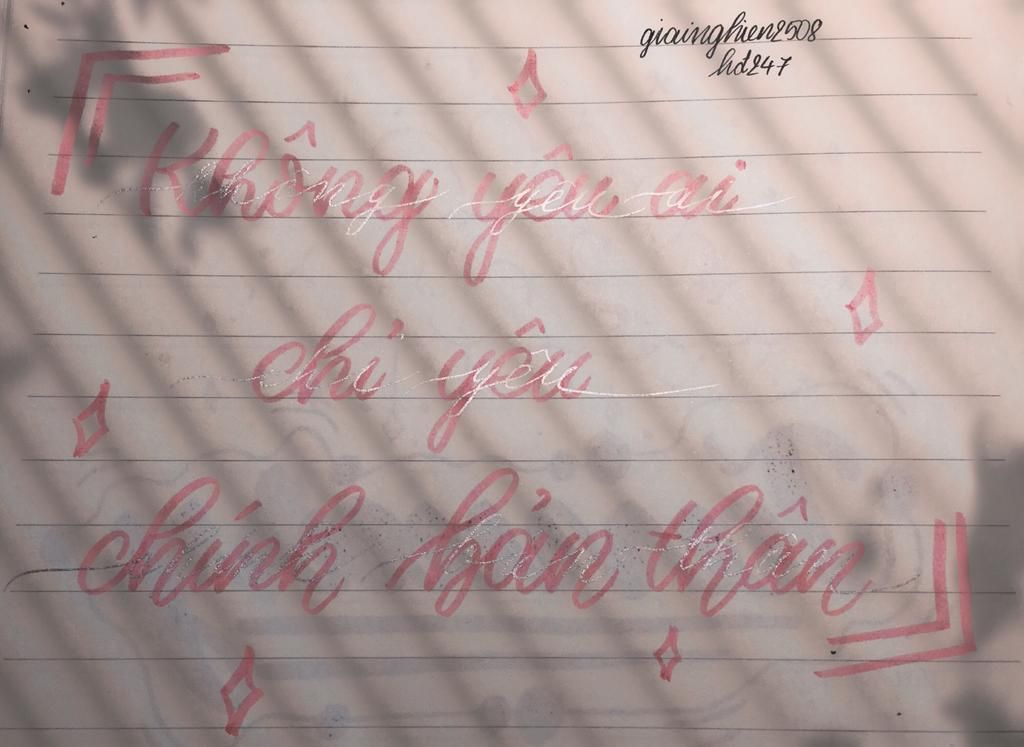 giainghien2508
hđ247
Không yêu ai
chỉ yêu
chính bản thân